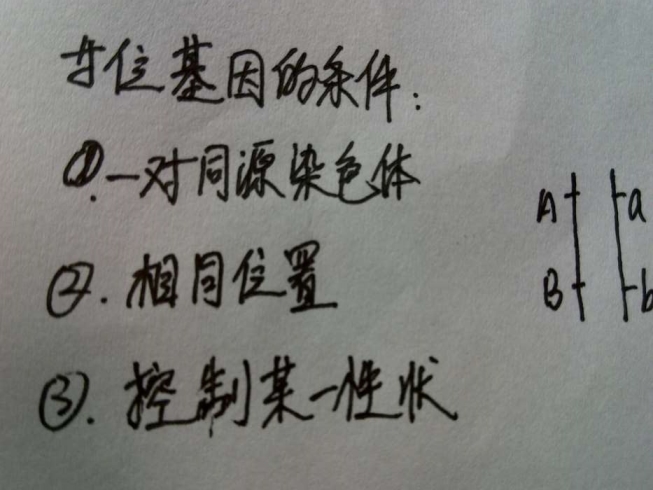 廾位基因的条件:
①.一对同源染色体
②.相同位置
③.控制某一性状
A a
B b